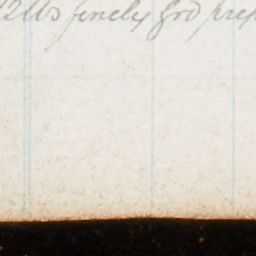 12 lbs finely grd prep